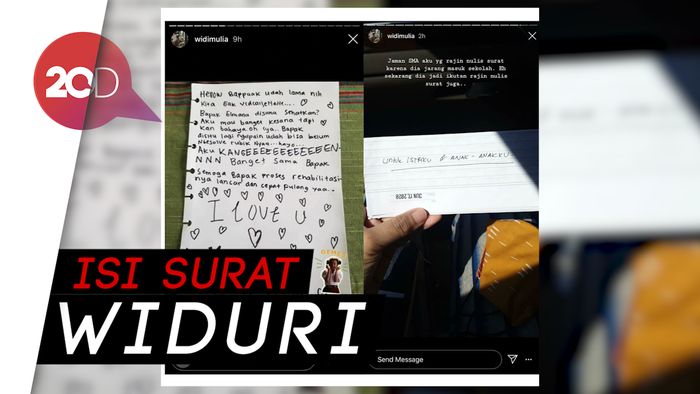 20D
widimulia 9h
HELLOW Bappaak udah lama nih
kita Gak vidcallMann....
Bapak Gimana disana Sehatkan?
Aku mau banget kesana tapi
kan bahaya eh iya.. Bapak
disitu lagi ngapain udah bisa belum
Ngesolve rubik Nyaa...hayo...
Aku KANGEEEEEEEEEEEEEN-
NNN Banget Sama Bapak
Semoga Bapak Proses rehabilitasi-
nya lancar dan cepat pulang yaa..
I love u
widimulia 2h
Jaman SMA aku yg rajin nulis surat
karena dia jarang masuk sekolah. Eh
sekarang dia jadi ikutan rajin nulis
surat juga..
UNTUK ISTRIKU & ANAK-ANAKKU
JUN 17, 2020
Send Message
ISI SURAT
WIDURI